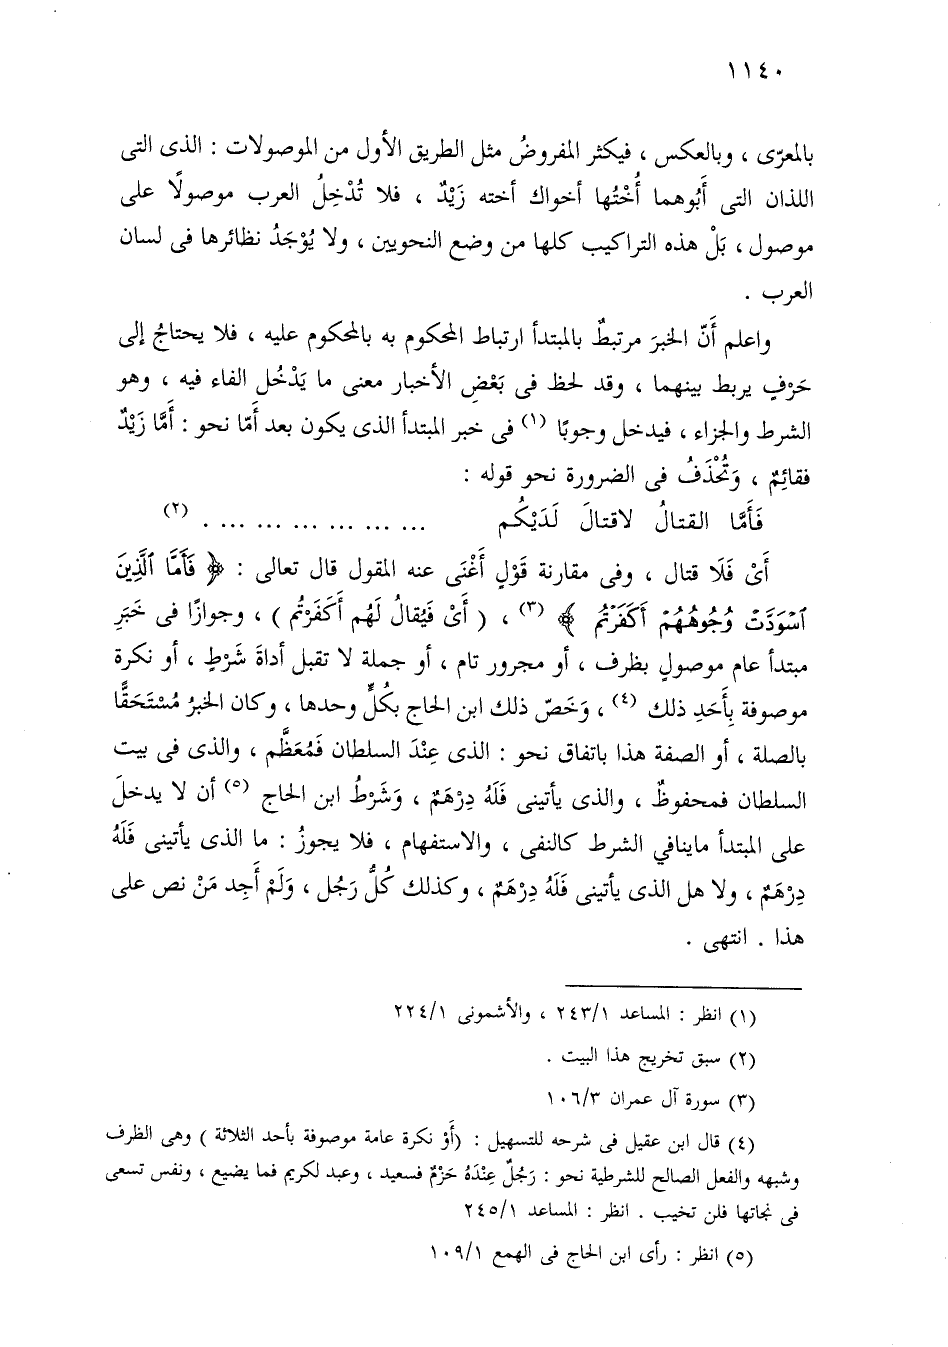 ١١٤٠
بالمعرّى ، وبالعكس ، فيكثر المفروضُ مثل الطريق الأول من الموصولات : الذى التى
اللذان التى أَبُوهما أُخْتُها أخواك أخته زَيْدٌ ، فلا تُدْخِلُ العرب موصولًا على
موصول ، بَلْ هذه التراكيب كلها من وضع النحويين ، ولا يُوْجَدُ نظائرها فى لسان
العرب .
واعلم أَنّ الخبرَ مرتبطٌ بالمبتدأ ارتباط المحكوم به بالمحكوم عليه ، فلا يحتاجُ إلى
حَرْفٍ يربط بينهما ، وقد لحظ فى بَعْضِ الأخبار معنى ما يَدْخُل الفاء فيه ، وهو
الشرط والجزاء ، فيدخل وجوبًا (١) فى خبر المبتدأ الذى يكون بعد أمّا نحو : أَمَّا زَيْدٌ
فقائِمٌ ، وَتُحْذَفُ فى الضرورة نحو قوله :
فَأَمَّا القتالُ لاقتالَ لَدَيْكُم ... ... ... ... ... ... . (٢)
أَىْ فَلَا قتال ، وفى مقارنة قَوْلٍ أَغْنَى عنه المقول قال تعالى : ﴿ فَأَمَّا ٱلَّذِينَ
ٱسْوَدَّتْ وُجُوهُهُمْ أَكَفَرْتُم ﴾ (٣) ، ( أَىْ فَيُقالُ لَهُم أَكَفَرْتُم ) ، وجوازًا فى خَبَرِ
مبتدأ عام موصولٍ بظرف ، أو مجرور تام ، أو جملة لا تقبل أداةَ شَرْطٍ ، أو نكرة
موصوفة بِأَحَدِ ذلك (٤) ، وَخَصّ ذلك ابن الحاج بكُلٍّ وحدها ، وكان الخبرُ مُسْتَحَقًّا
بالصلة ، أو الصفة هذا باتفاق نحو : الذى عِنْدَ السلطان فَمُعَظَّم ، والذى فى بيت
السلطان فمحفوظٌ ، والذى يأتينى فَلَهُ دِرْهَمٌ ، وَشَرْطُ ابن الحاج (٥) أن لا يدخلَ
على المبتدأ ماينافي الشرط كالنفى ، والاستفهام ، فلا يجوزُ : ما الذى يأتينى فَلَهُ
دِرْهَمٌ ، ولا هل الذى يأتينى فَلَهُ دِرْهَمٌ ، وكذلك كُلُّ رَجُل ، وَلَمْ أَجِد مَنْ نص على
هذا . انتهى .
(١) انظر : المساعد ٢٤٣/١ ، والأشمونى ٢٢٤/١
(٢) سبق تخريج هذا البيت .
(٣) سورة آل عمران ١٠٦/٣
(٤) قال ابن عقيل فى شرحه للتسهيل : (أَوْ نكرة عامة موصوفة بأحد الثلاثة ) وهى الظرف
وشبهه والفعل الصالح للشرطية نحو : رَجُلٌ عِنْدَهُ حَزْمٌ فسعيد ، وعبد لكريم فما يضيع ، ونفس تسعى
فى نجاتها فلن تخيب . انظر : المساعد ٢٤٥/١
(٥) انظر : رأى ابن الحاج فى الهمع ١٠٩/١